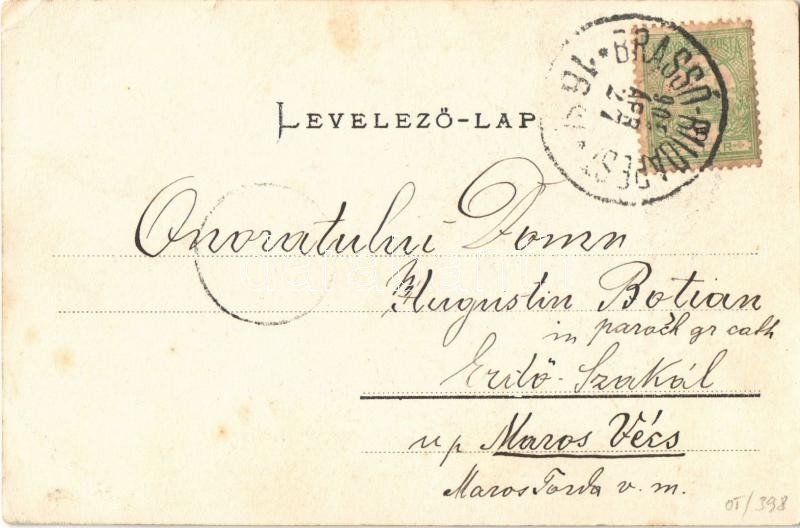 LEVELEZŐ-LAP
BRASSÓ-BUDAPEST
905
APR
27
Onoratului Domn
Augustin Botian
paroch gr cath
Erdő-Szakál
u p Maros Vécs
Maros Torda v. m.
OT/398